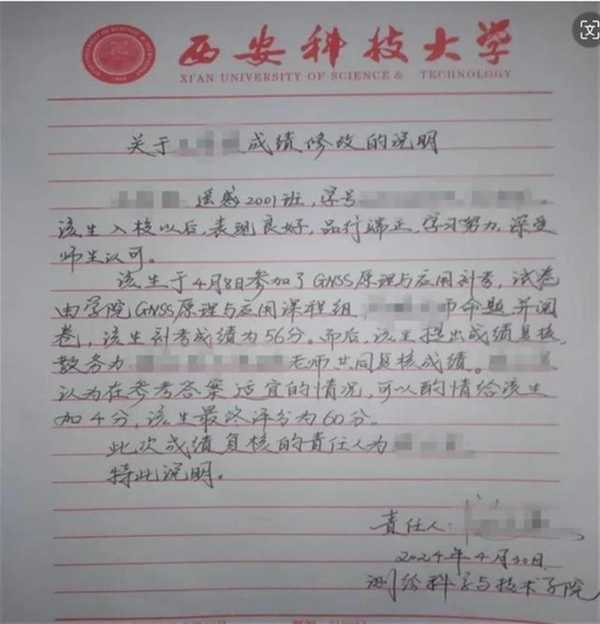 西安科技大学
XI'AN UNIVERSITY OF SCIENCE & TECHNOLOGY
关于 成绩修改的说明
遥感2001班，学号
该生入校以后，表现良好，品行端正，学习努力，深受
师生认可。
该生于4月8日参加了GNSS原理与应用补考，试卷
由学院GNSS原理与应用课程组， 命题并阅
卷，该生补考成绩为56分。而后，该生提出成绩复核，
教务办 老师共同复核成绩。
认为在参考答案适宜的情况，可以酌情给该生
加4分，该生最终评分为60分。
此次成绩复核的责任人为
特此说明。
责任人：
2024年4月30日
测绘科学与技术学院